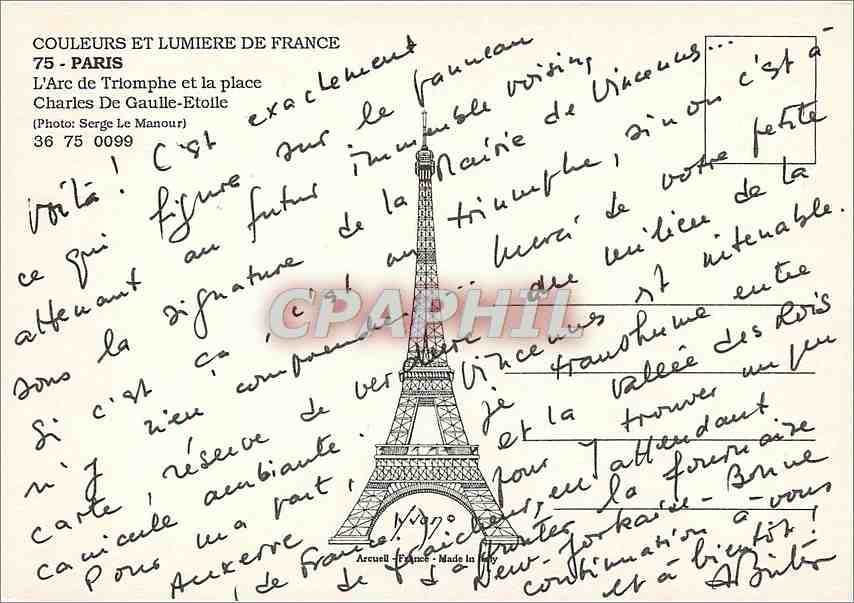 COULEURS ET LUMIERE DE FRANCE
75 - PARIS
L'Arc de Triomphe et la place
Charles De Gaulle-Etoile
(Photo: Serge Le Manour)
36 75 0099
Voilà ! C'est exactement
ce qui figure sur le panneau
attenant au futur immeuble voisin,
sous la signature de la Mairie de Vincennes...
Si c'est ça, c'est un triomphe, sinon c'est à
n'y rien comprendre... Merci de votre petite
carte, réserve de verdure au milieu de la
canicule ambiante. Vincennes est intenable.
Pour ma part, je transhume entre
Auxerre et la vallée des Rois
, de France, pour y trouver un peu
de fraîcheur, en attendant
d'affronter la fournaise
New-Yorkaise - Bonne
continuation à vous
et à bientôt !
Yvon
Arcueil - France - Made in Italy
CPAPHIL